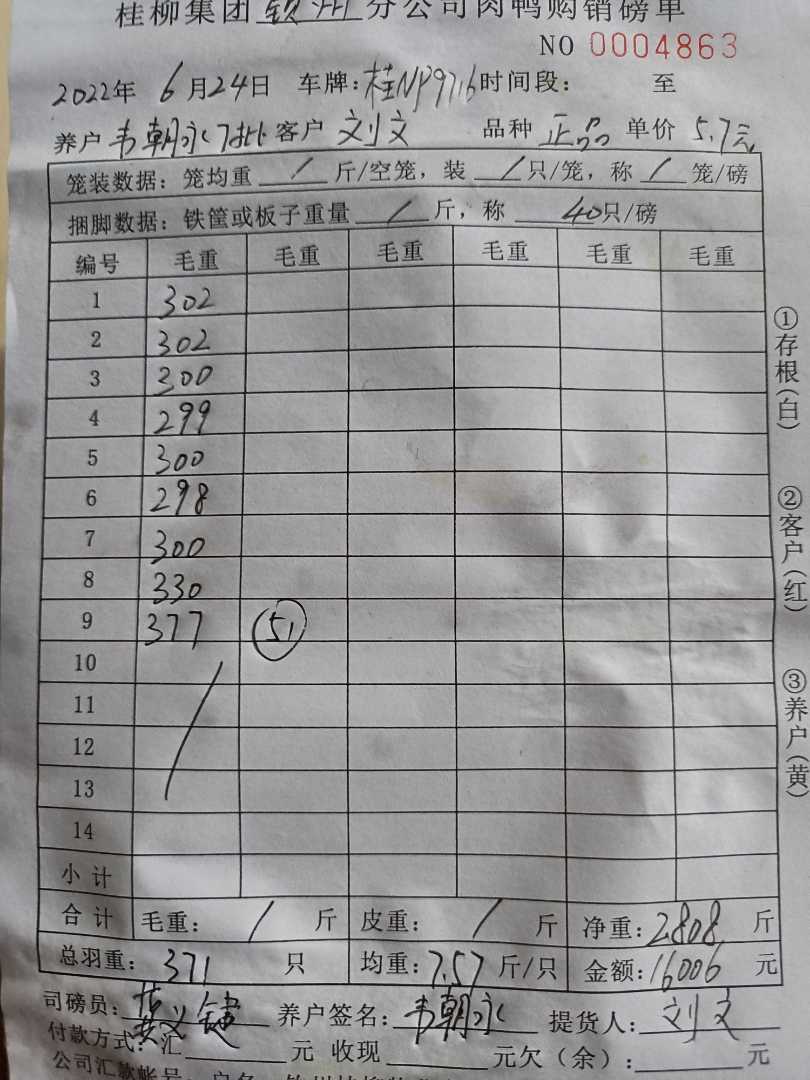 桂柳集团钦州分公司肉鸭购销磅单
NO 0004863
2022年 6月24日 车牌:桂NP9716 时间段: 至
养户 韦朝永7批 客户 刘文 品种 正品 单价 5.7元
笼装数据:笼均重 / 斤/空笼,装 / 只/笼,称 / 笼/磅
捆脚数据:铁筐或板子重量 / 斤,称 40只/磅
编号 毛重 毛重 毛重 毛重 毛重 毛重
1 302
2 302
3 300
4 299
5 300
6 298
7 300
8 330
9 377 51
10
11
12
13
14
小计
合计 毛重: / 斤 皮重: / 斤 净重:2808 斤
总羽重: 371 只 均重:7.57 斤/只 金额:16006 元
司磅员: 养户签名:韦朝永 提货人:刘文
付款方式:汇 元 收现 元欠(余): 元
公司汇款帐号: 户名:
①存根(白)
②客户(红)
③养户(黄)